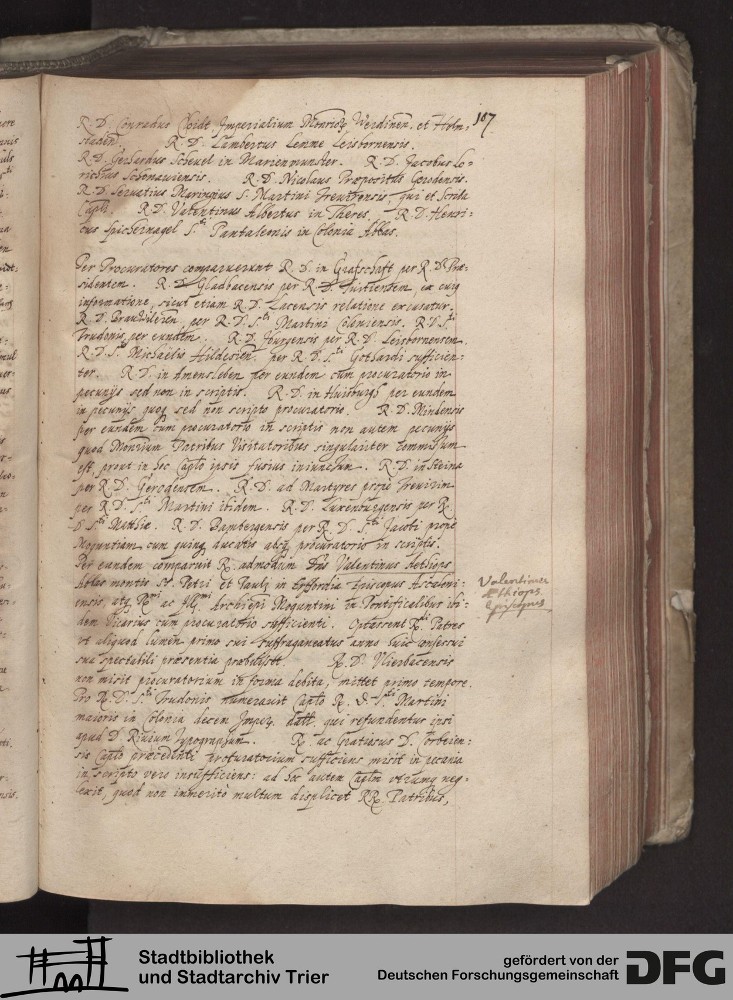 187
R. D. Conradus Cloidt Imperialium Monrioꝝ Werdinen. et Helm-
staden. R. D. Lambertus Lemme Leisbornensis.
R. D. Gerhardus Scheuel in Marienmunster. R. D. Jacobus Lo-
richius Schonauiensis. R. D. Nicolaus Præpositus Gerodensis.
R. D. Seruatius Maringius S. Martini Treuirensis, qui et Scriba
Capli. R. D. Valentinus Albertus in Theres. R. D. Henri-
cus Spichernagel S.ti Pantaleonis in Colonia Abbas.
Per Procuratores comparuerunt R. D. in Grafschafft per R. D. Præ-
sidentem. R. D. Gladbacensis per R. D. Tuitiensem, ex cuiꝰ
informatione, sicut etiam R. D. Lacensis relatione excusatur.
R. D. Brauwileren. per R. D. S.ti Martini Coloniensis. R. D. S.ti
Trudonis per eundem. R. D. Iburgensis per R. D. Leisbornensem.
R. D. S.ti Michaëlis Hildesien. per R. D. S.ti Gothardi sufficien-
ter. R. D. in Amensleben per eundem cum procuratorio in
pecunijs sed non in scriptis. R. D. in Huisburgh per eundem
in pecunijs quoq; sed non scripto procuratorio. R. D. Mindensis
per eundem cum procuratorio in scriptis non autem pecunijs
quod Monrium Patribus Visitatoribus singulariter commissum
est, prout in hoc Caplo ipsis fusius iniunctum. R. D. in Steina
per R. D. Gerodensem. R. D. ad Martyres prope Treuirim
per R. D. S.ti Martini ibidem. R. D. Luxenburgensis per R.
D. S.ti Matthiæ. R. D. Bambergensis per R. D. S.ti Jacobi prope
Moguntiam cum quinq; aucatis absq; procuratorio in scriptis.
Per eundem comparuit R. admodum Dns Valentinus Aethiops
Abbas montis SS. Petri et Pauli in Erffordia Episcopus Ascaloni-
ensis, atq; R.mi ac Ill.mi Archiepi Moguntini in Pontificalibus ibi-
dem Vicarius cum procuratorio sufficienti. Optassent R.di Patres
vt aliquod lumen primo sui suffraganeatus anno huic consessui
sua spectabili præsentia præbuisset. R. D. Vlierbacensis
non misit procuratorium in forma debita, mittet primo tempore.
Pro R. D. S.ti Trudonis numerauit Caplo R. D. S.ti Martini
maioris in Colonia decem Imper. dall. qui refundentur ipsi
apud D. Typographum. R. ac Gratiosus D. Corbeien-
sis Caplo præcedenti procuratorium sufficiens misit in pecunia
in scripto vero insufficiens: ad hoc autem Caplm vtrumq; neg-
lexit, quod non immerito multum displicet RR. Patribus,
Valentinus
Æthiops
Episcopus
Stadtbibliothek
und Stadtarchiv Trier
gefördert von der
Deutschen Forschungsgemeinschaft
DFG